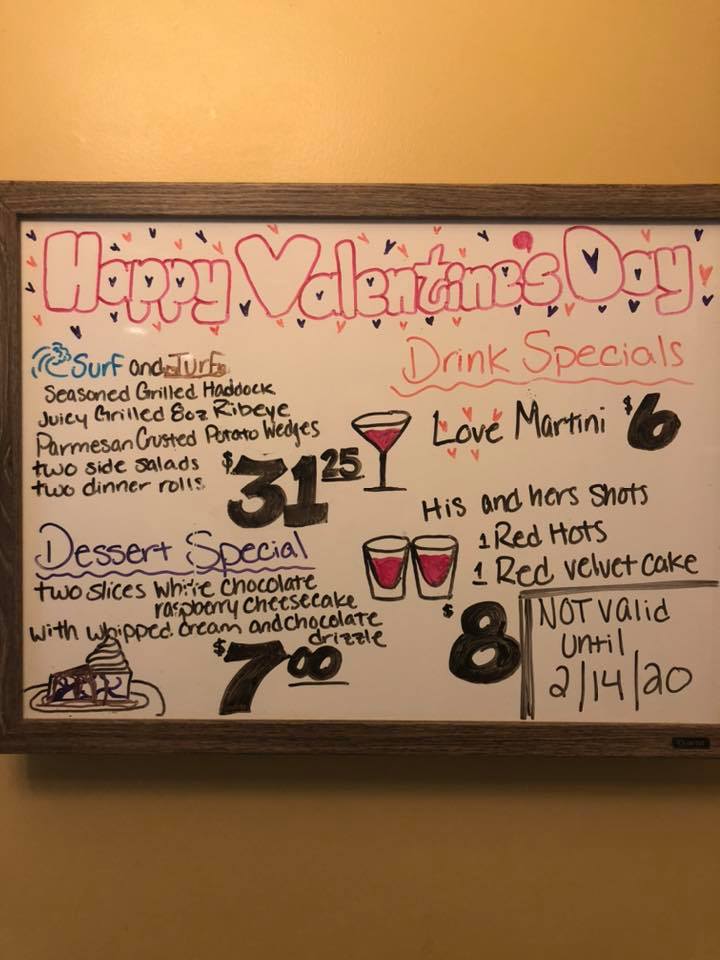 Happy Valentine's Day
Surf and Turf
Seasoned Grilled Haddock
Juicy Grilled 8oz Ribeye
Parmesan Crusted Potato Wedges
two side salads
two dinner rolls
$31.25
Dessert Special
two slices white chocolate
raspberry cheesecake
with whipped cream and chocolate
drizzle
$7.00
Drink Specials
Love Martini $6
His and hers shots
1 Red Hots
1 Red velvet cake
$8
NOT valid
until
2/14/20